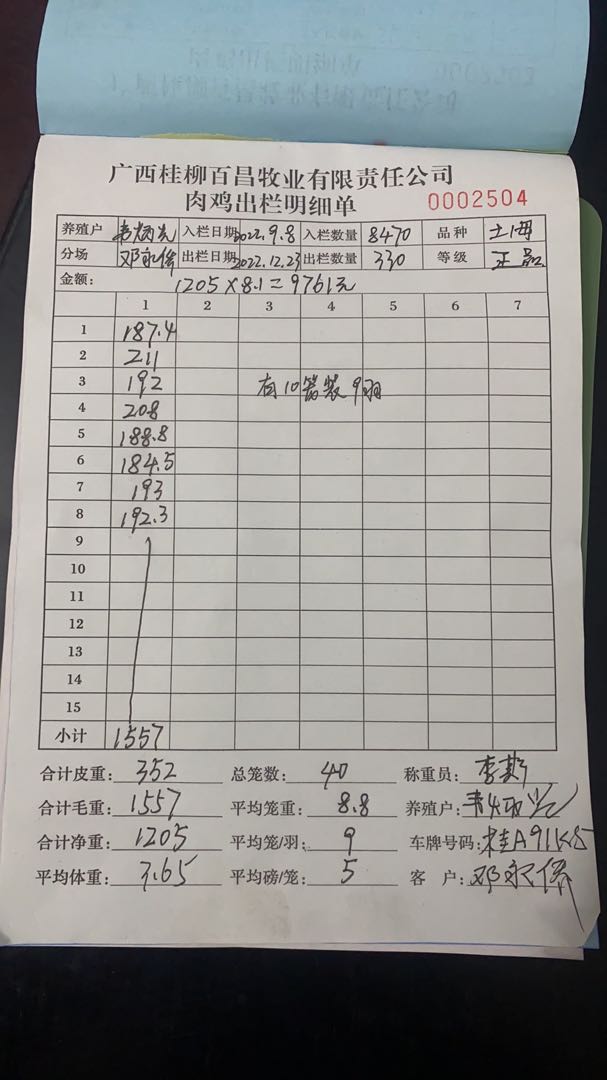 广西桂柳百昌牧业有限责任公司
肉鸡出栏明细单 0002504
养殖户 韦炳光 入栏日期 2022.9.8 入栏数量 8470 品种 土海
分场 邓永保 出栏日期 2022.12.23 出栏数量 330 等级 正品
金额： 1205×8.1=9761元
1 2 3 4 5 6 7
1 187.4
2 211
3 192 有10笼装9羽
4 208
5 188.8
6 184.5
7 193
8 192.3
9
10
11
12
13
14
15
小计 1557
合计皮重： 352 总笼数： 40 称重员： 李
合计毛重： 1557 平均笼重： 8.8 养殖户： 韦炳光
合计净重： 1205 平均笼/羽： 9 车牌号码： 桂A91K
平均体重： 3.65 平均磅/笼： 5 客户： 邓永保